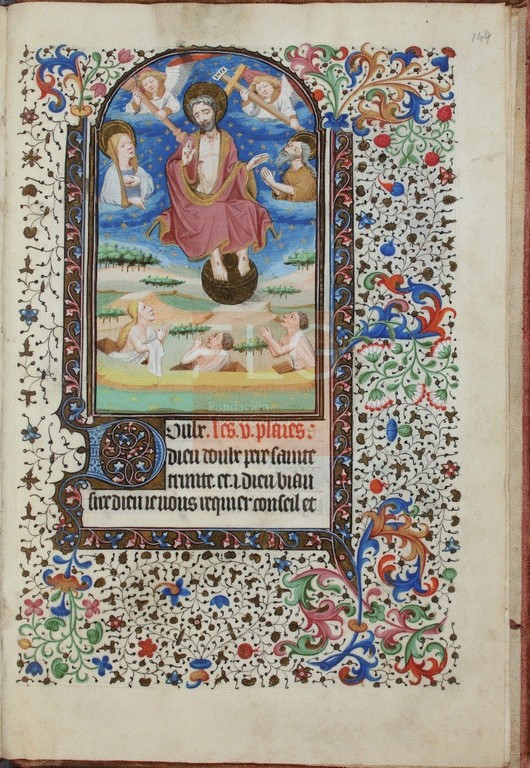 149
Doulx. les. v. plaies.
dieu doulx pere sainte
trinite. et. i. dieu biau
sire dieu ie vous requier conseil et
Fundación